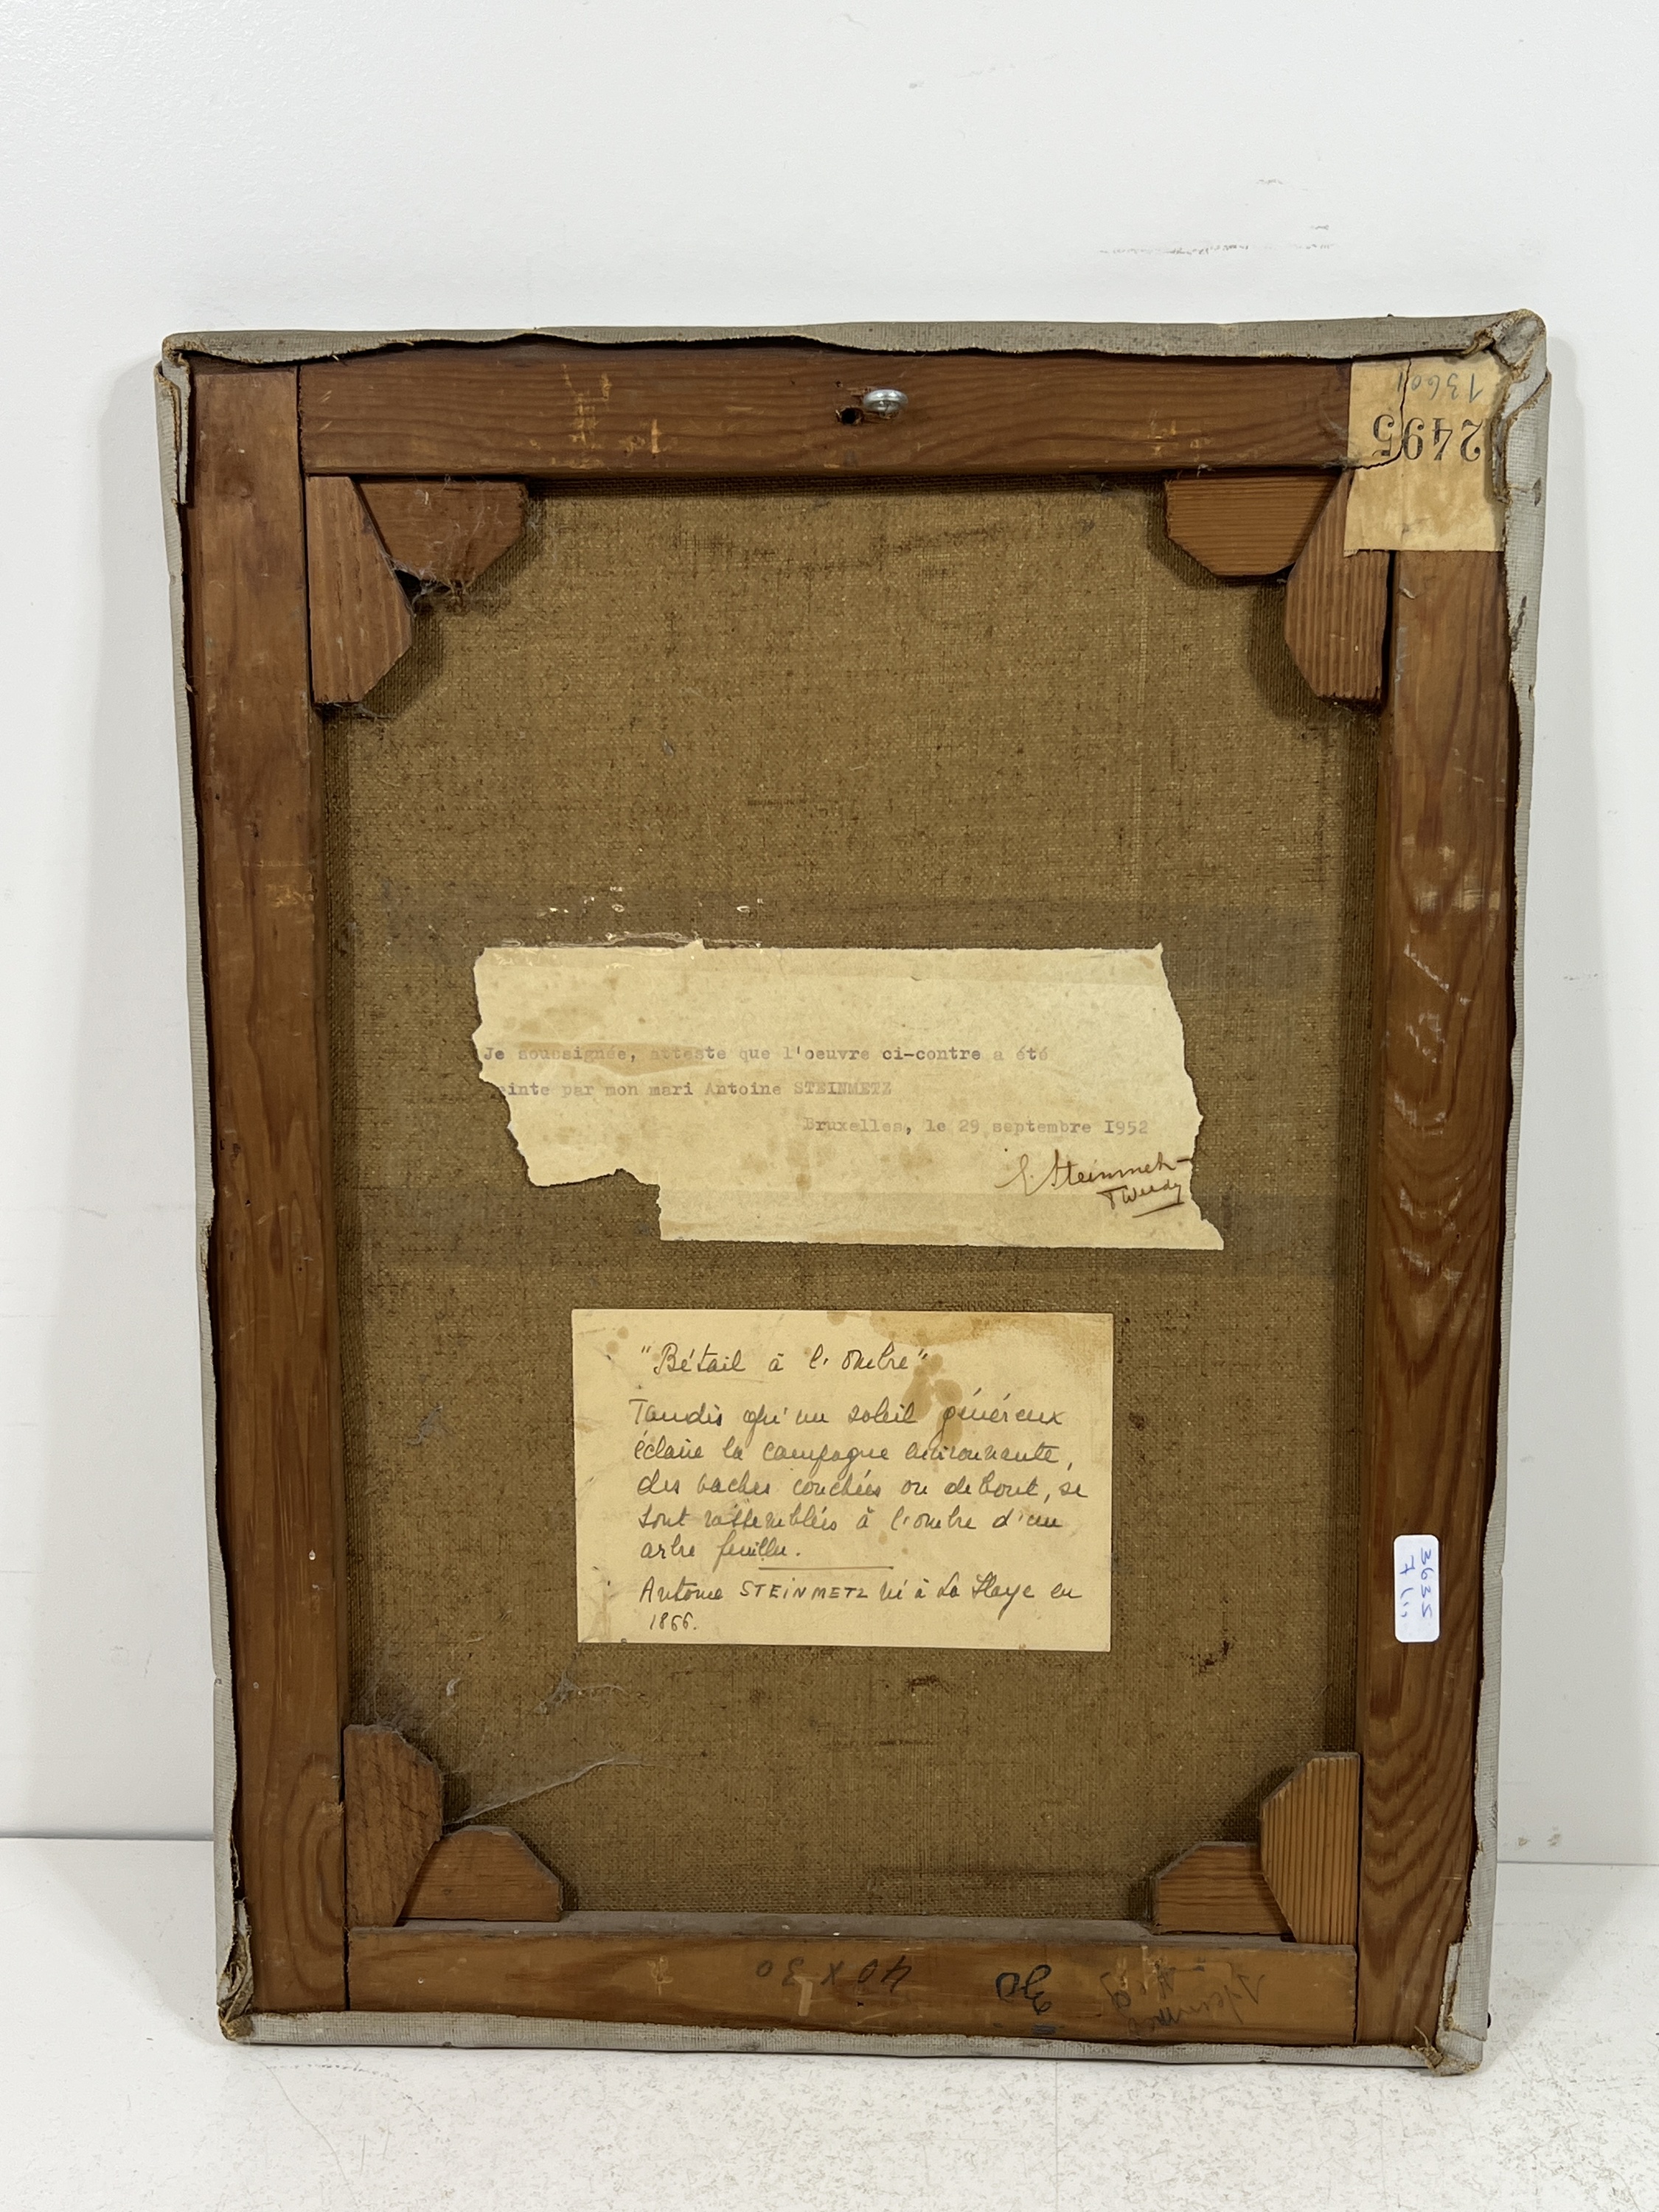 13601
2495
Je soussignée, atteste que l'oeuvre ci-contre a été
einte par mon mari Antoine STEINMETZ
Bruxelles, le 29 septembre I952
E. Steinmetz-
Tweedy
"Bétail à l'ombre"
Tandis qu'un soleil généreux
éclaire la campagne environnante,
des vaches couchées ou debout, se
sont rassemblées à l'ombre d'un
arbre feuillu.
Antoine STEINMETZ né à La Haye en
1866.
3635
40 x 30
30